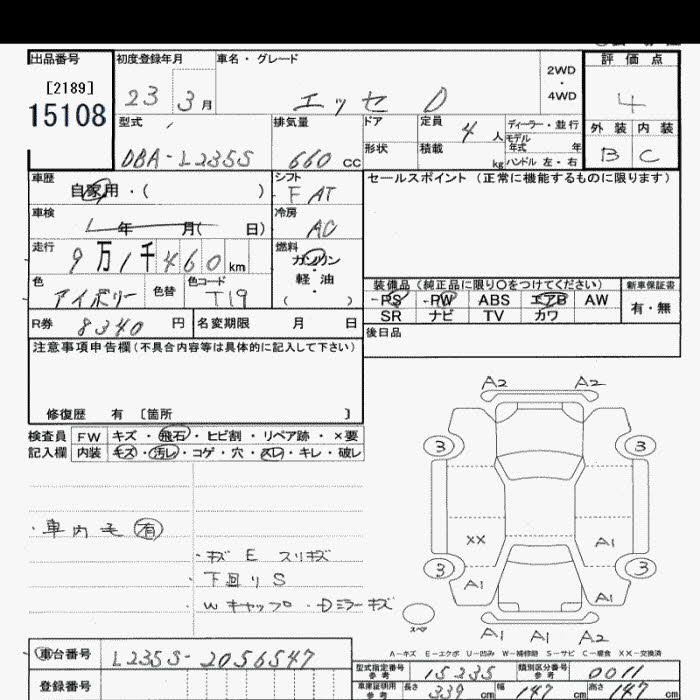 出品番号
[2189]
15108
初度登録年月
23 3月
車名・グレード
エッセ D
2WD
・
4WD
評価点
4
外装 内装
B C
型式
DBA-L235S
排気量
660 cc
ドア
定員 4 人
ディーラー・並行
モデル年式 年
形状
積載 kg
ハンドル 左・右
車歴
自家用・( )
シフト
F AT
車検
年 月( 日)
冷房
AC
走行
9万1千460km
燃料
ガソリン
・
軽油
( ・ )
色
アイボリー
色替
色コード
T19
R券 8340 円
名変期限 月 日
セールスポイント (正常に機能するものに限ります)
装備品 (純正品に限り○をつけてください)
新車保証書
PS PW ABS エアB AW
SR ナビ TV カワ
有・無
後日品
注意事項申告欄 (不具合内容等は具体的に記入して下さい)
修復歴 有 〔箇所 〕
検査員記入欄
FW キズ・飛石・ヒビ割・リペア跡・×要
内装 モズ・汚レ・コゲ・穴・スレ・キレ・破レ
・車内毛有
・キズ E スリキズ
・下回りS
・Wキャップ・Dミラーキズ
A2 A2
3 3
XX A1
3 3
A1 A1
スペア
A1 A1 A2
A-キズ E-エクボ U-凹み W-補修跡 S-サビ C-腐食 XX-交換済
車台番号
L235S-2056547
登録番号
型式指定番号 参考
15235
類別区分番号 参考
0011
車庫証明用 参考
長さ 339 cm 幅 147 cm 高さ 147 cm